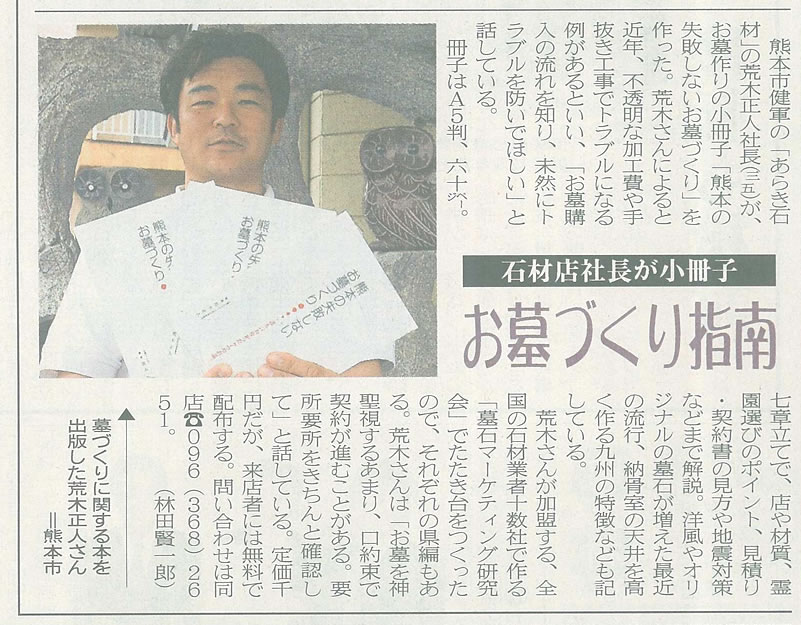 石材店社長が小冊子
お墓づくり指南
熊本市健軍の「あらき石
材」の荒木正人社長(三五)が、
お墓作りの小冊子「熊本の
失敗しないお墓づくり」を
作った。荒木さんによると
近年、不透明な加工費や手
抜き工事でトラブルになる
例があるといい、「お墓購
入の流れを知り、未然にト
ラブルを防いでほしい」と
話している。
冊子はA5判、六十ページ。
七章立てで、店や材質、霊
園選びのポイント、見積り
・契約書の見方や地震対策
などまで解説。洋風やオリ
ジナルの墓石が増えた最近
の流行、納骨室の天井を高
く作る九州の特徴なども記
している。
荒木さんが加盟する、全
国の石材業者十数社で作る
「墓石マーケティング研究
会」でたたき台をつくった
ので、それぞれの県編もあ
る。荒木さんは「お墓を神
聖視するあまり、口約束で
契約が進むことがある。要
所要所をきちんと確認し
て」と話している。定価千
円だが、来店者には無料で
配布する。問い合わせは同
店☎096(368)26
51。 (林田賢一郎)
墓づくりに関する本を
出版した荒木正人さん
=熊本市
熊本の失
お墓づくり
熊本の失
お墓づくり
熊本の失敗しない
お墓づくり